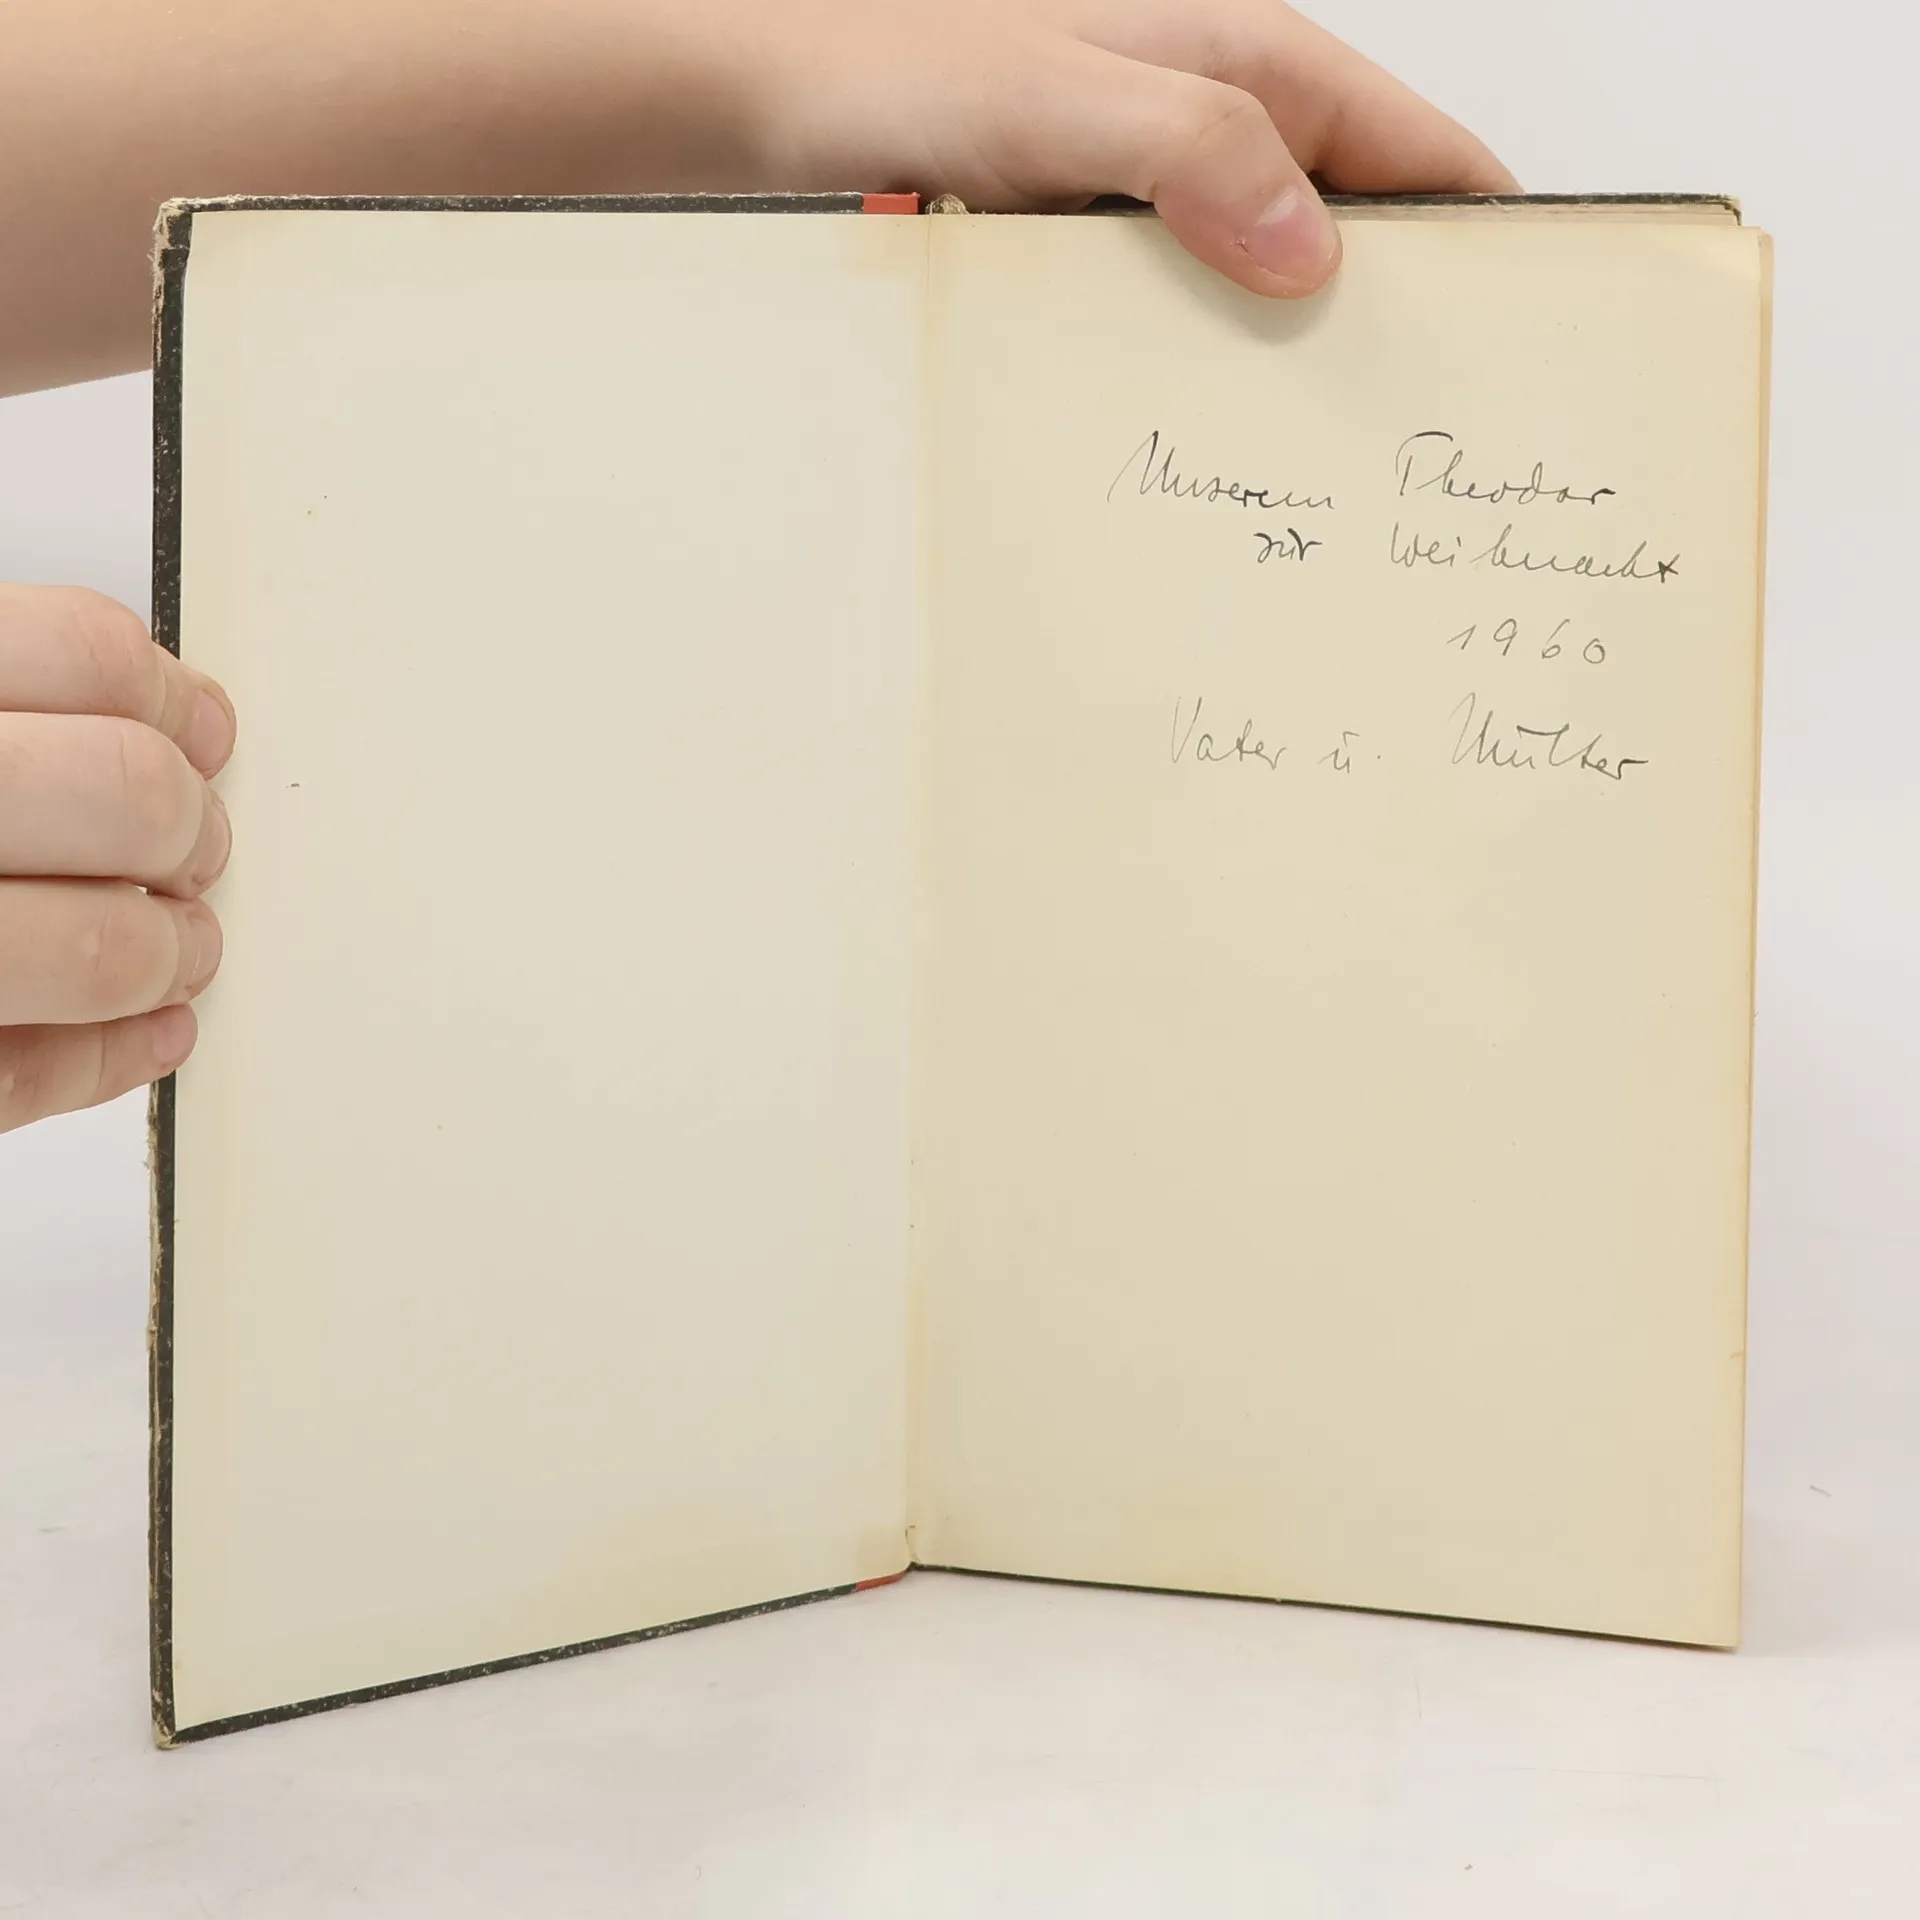 Unserem Theodor
zur Weihnacht
1960
Vater u. Mutter